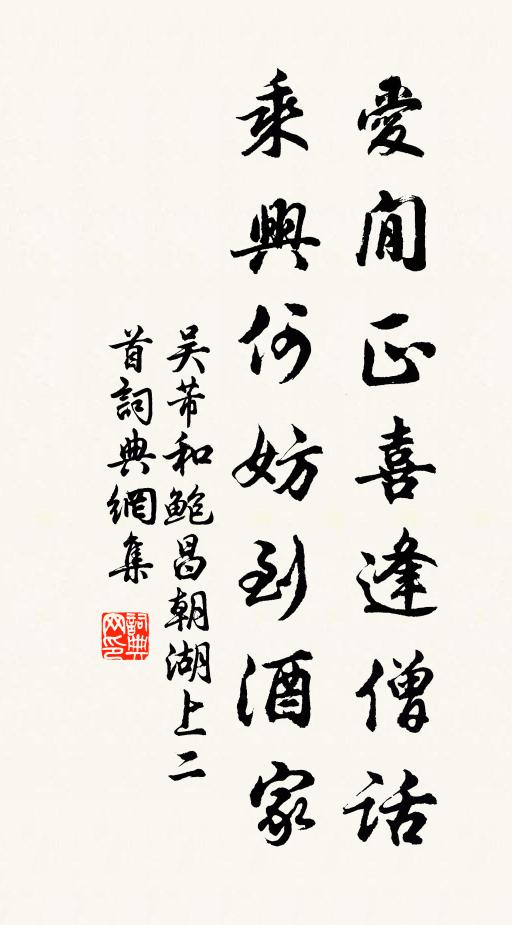 愛閒正喜逢僧話
乘興何妨到酒家
吴芾和鮑昌朝湖上二
首詞典網集
詞典
网印